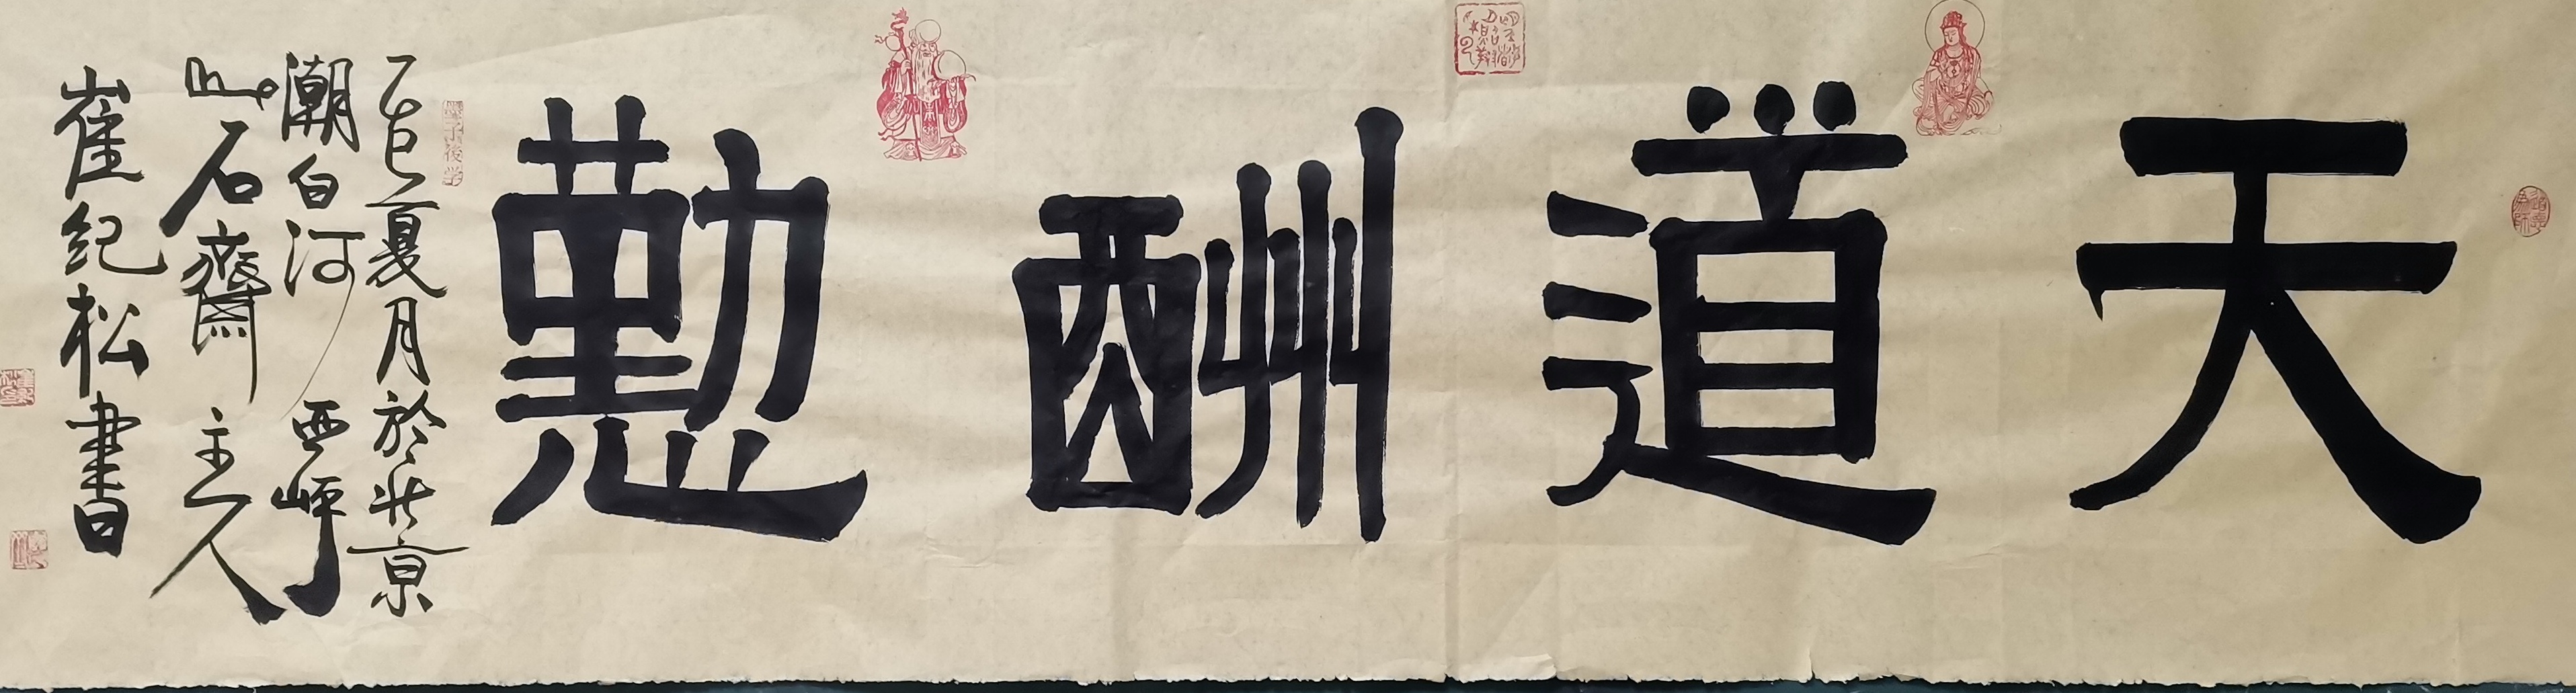 天道酬懃
乙巳夏月於北京
潮白河西岸
石齋主人
崔纪松書